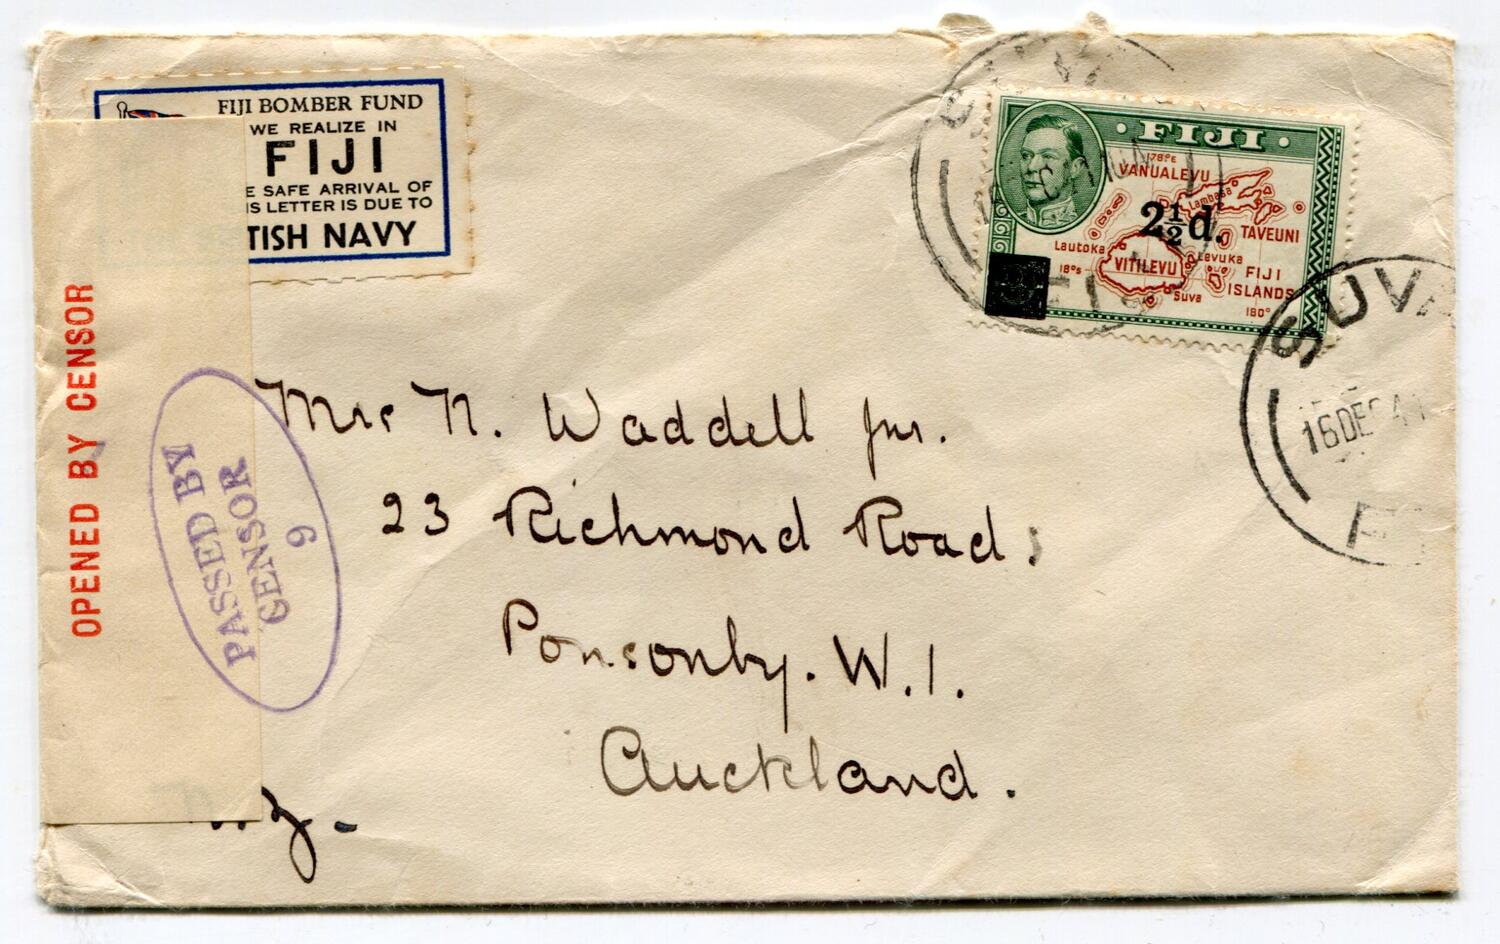 FIJI BOMBER FUND
WE REALIZE IN
FIJI
E SAFE ARRIVAL OF
IS LETTER IS DUE TO
TISH NAVY
OPENED BY CENSOR
PASSED BY
CENSOR
9
SUVA
FIJI
178°E
VANUALEVU
Lambasa
2½d.
TAVEUNI
Lautoka
Levuka
18°S
VITILEVU
FIJI
ISLANDS
Suva
180°
SUVA
16 DEC 41
Mrs N. Waddell Jnr.
23 Richmond Road,
Ponsonby. W.1.
Auckland.